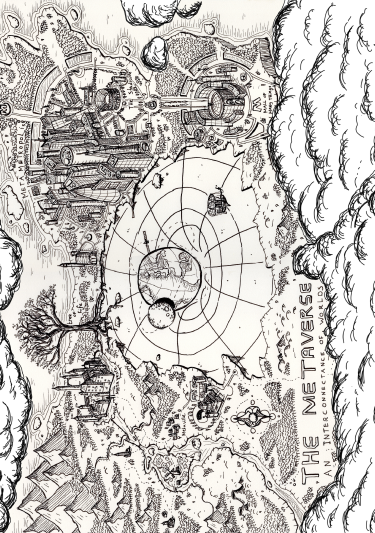 THE METAVERSE
AN INTERCONNECTANCE OF WORLDS